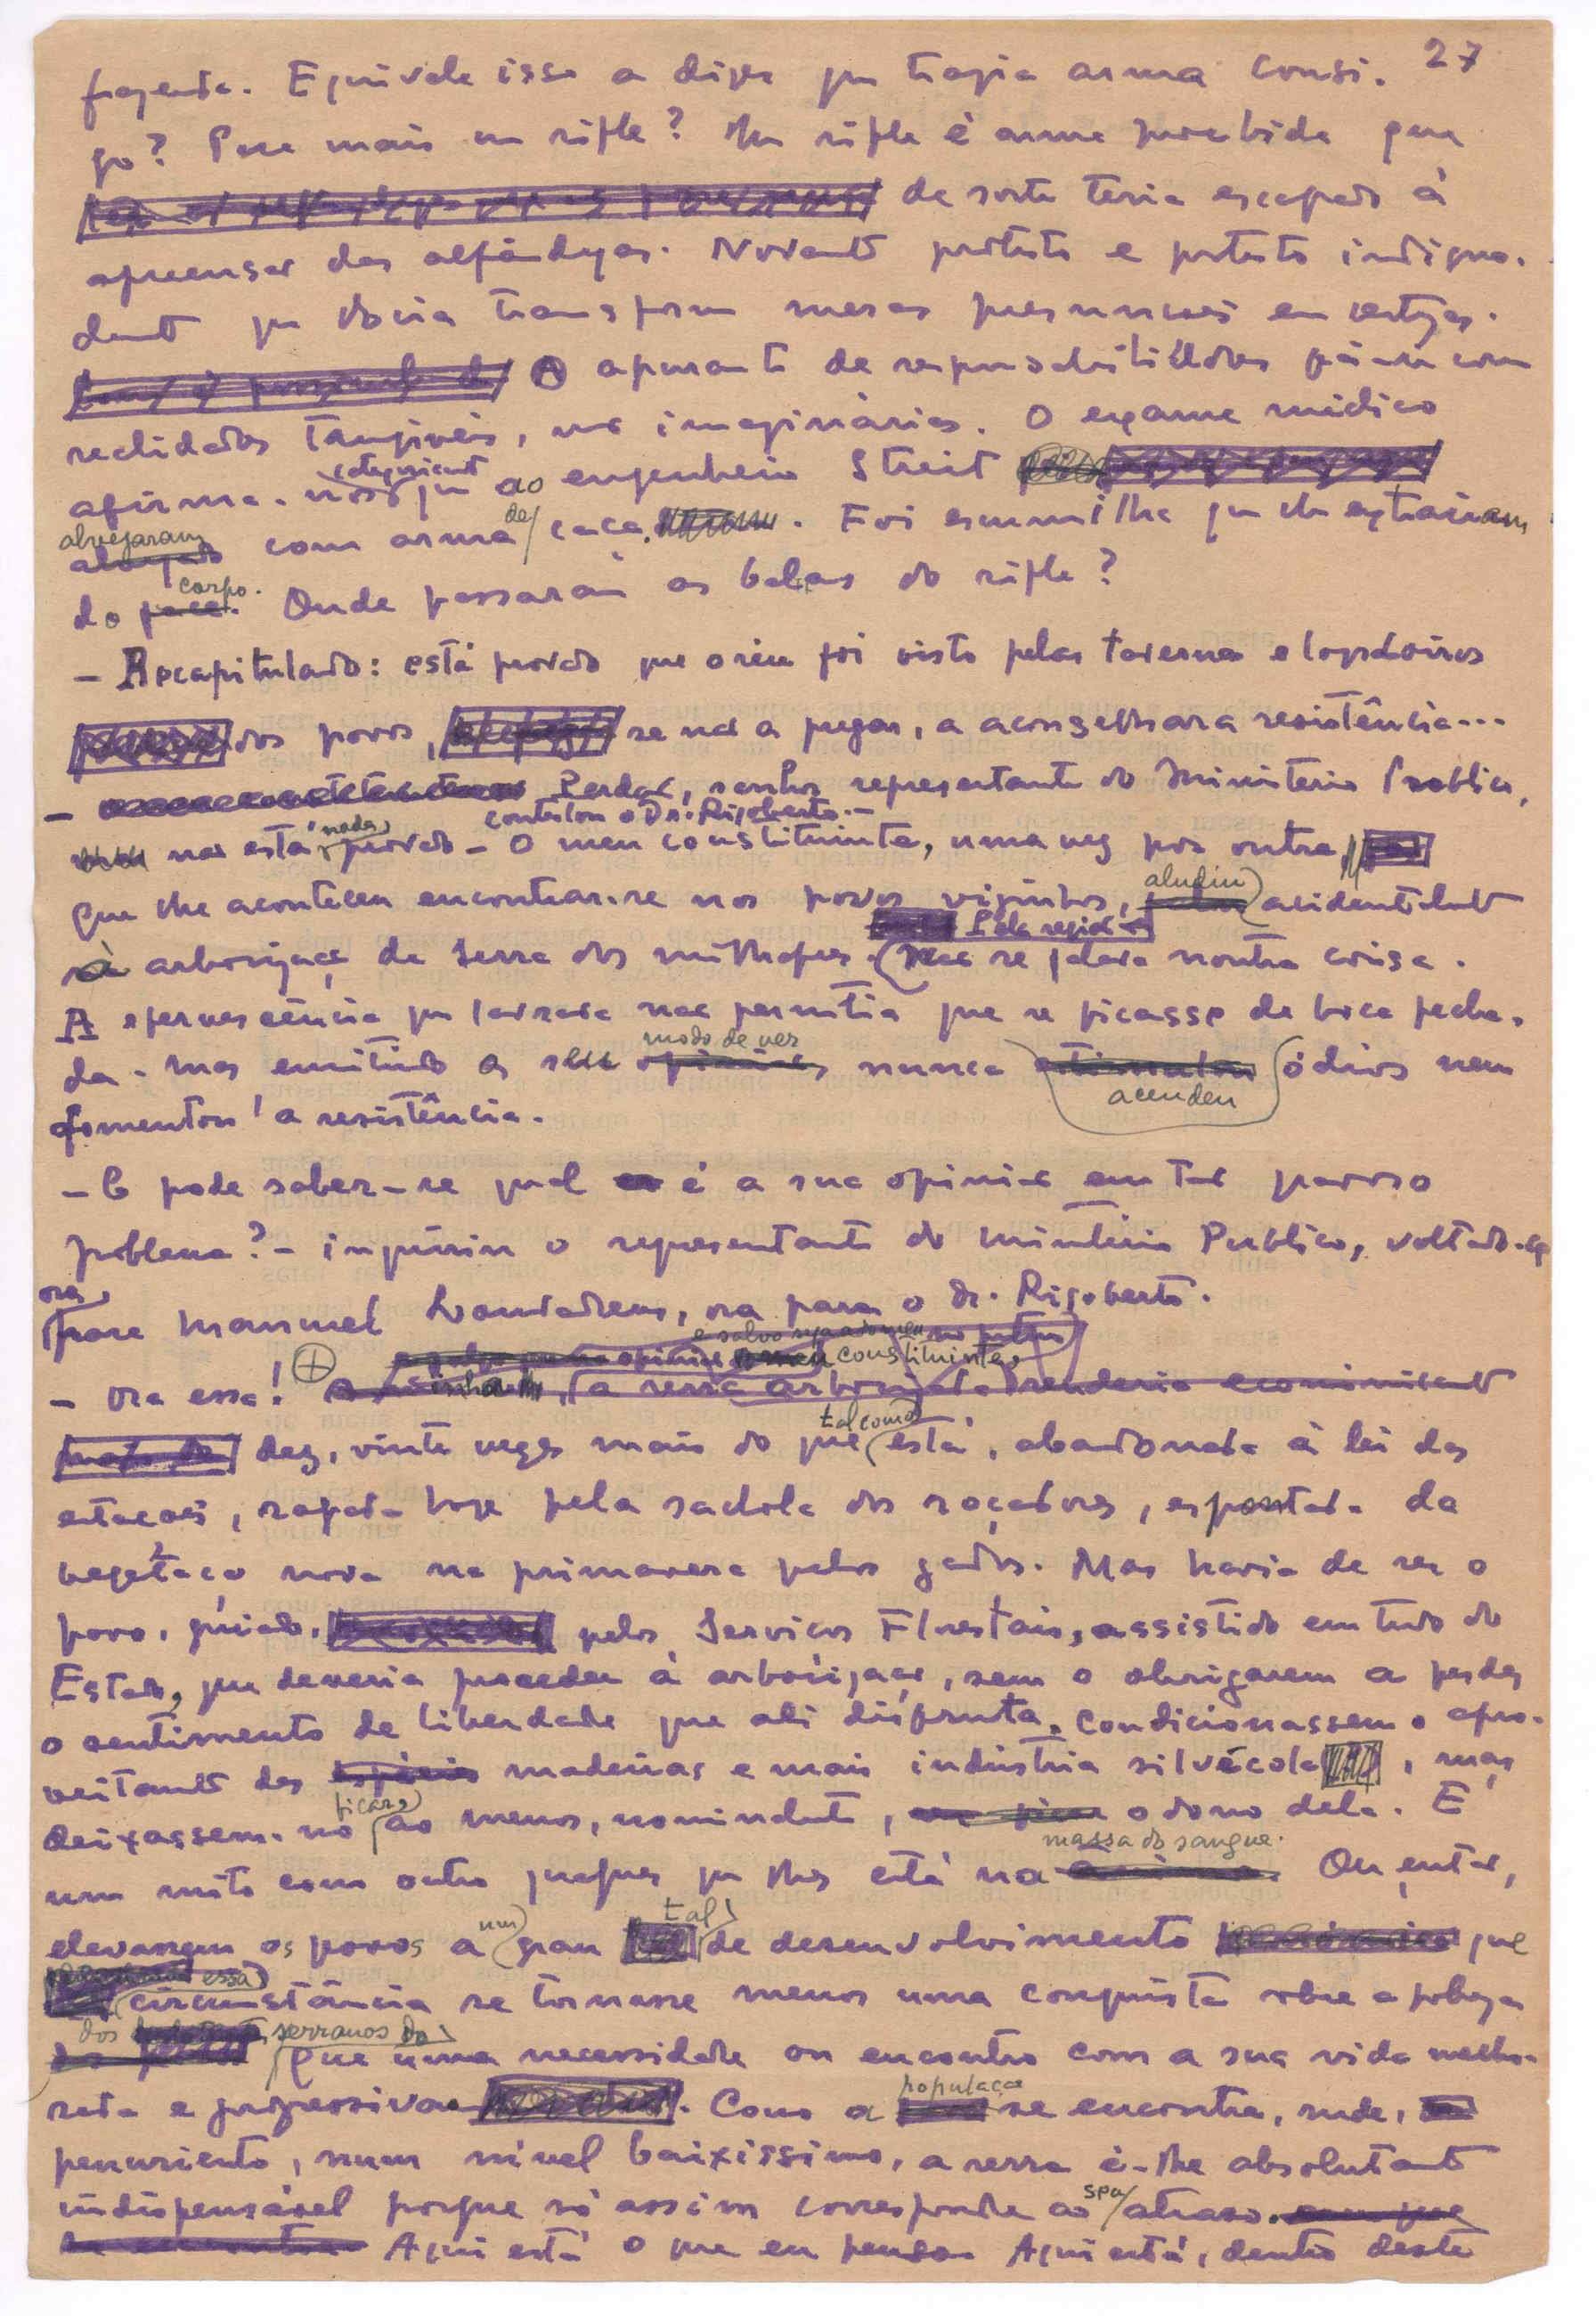 27
fazenda. Equivale isso a dizer que trazia arma consi-
go? Para mais um rifle? Um rifle é arma proibida que
de sorte teria escapado à
apreensão das alfândegas. Novamente protesto e protesto indigna-
damente que se transforme meras presunções em certezas.
O apuramento de responsabilidades faz-se com
realidades tangíveis, não imaginárias. O exame médico
afirma-nos categoricamente que ao engenheiro Streit
alvejaram com arma de caça. Foi escumilha que lhe extrairam
do corpo. Onde passaram as balas do rifle?
— Recapitulando: está provado que o réu foi visto pelas tavernas e logradoiros
dos povos, se não a pregar, a aconselhar a resistência...
— Perdão, senhor representante do Ministério Público,
não está nada provado — contestou o Dr. Rigoberto. — O meu constituinte, uma vez por outra,
que lhe aconteceu encontrar-se nos povos vizinhos, aludiu acidentalmente
à arborização da Serra dos Milhafres. Pela região não se falava noutra coisa.
A efervescência que lavrava não permitia que se ficasse de boca fecha-
da. Mas emitindo o seu modo de ver, nunca acendeu ódios nem
fomentou a resistência.
— E pode saber-se qual é a sua opinião em tão
problema? — inquiriu o representante do Ministério Público, voltando-se
ora para Manuel Louvadeus, ora para o dr. Rigoberto.
— Ora essa! a serra arborizada renderia economicamente
dez, vinte vezes mais do que tal como está, abandonada à lei das
estações, rapada hoje pela sachola dos roçadores, espontada da
vegetação nova na primavera pelos gados. Mas havia de ser o
povo, guiado, pelos Serviços Florestais, assistido em tudo do
Estado, que deveria proceder à arborização, sem o obrigarem a perder
o sentimento de liberdade que ali disfruta. Condicionassem o apro-
veitamento das madeiras e mais indústria silvícola, mas
deixassem-no ficar, ao menos, nominalmente, o dono dela. É
um mito como outro qualquer que lhes está na massa do sangue. Ou então,
elevassem os povos a um grau tal de desenvolvimento que
essa circunstância se tornasse menos uma conquista sobre a pobreza
dos serranos do que uma necessidade ou encontro com a sua vida melho-
rada e progressiva. Como a população se encontra, rude,
penuriento, num nível baixíssimo, a serra é-lhe absolutamente
indispensável porque só assim corresponde ao seu atraso.
Aqui está o que eu penso. Aqui está, dentro deste